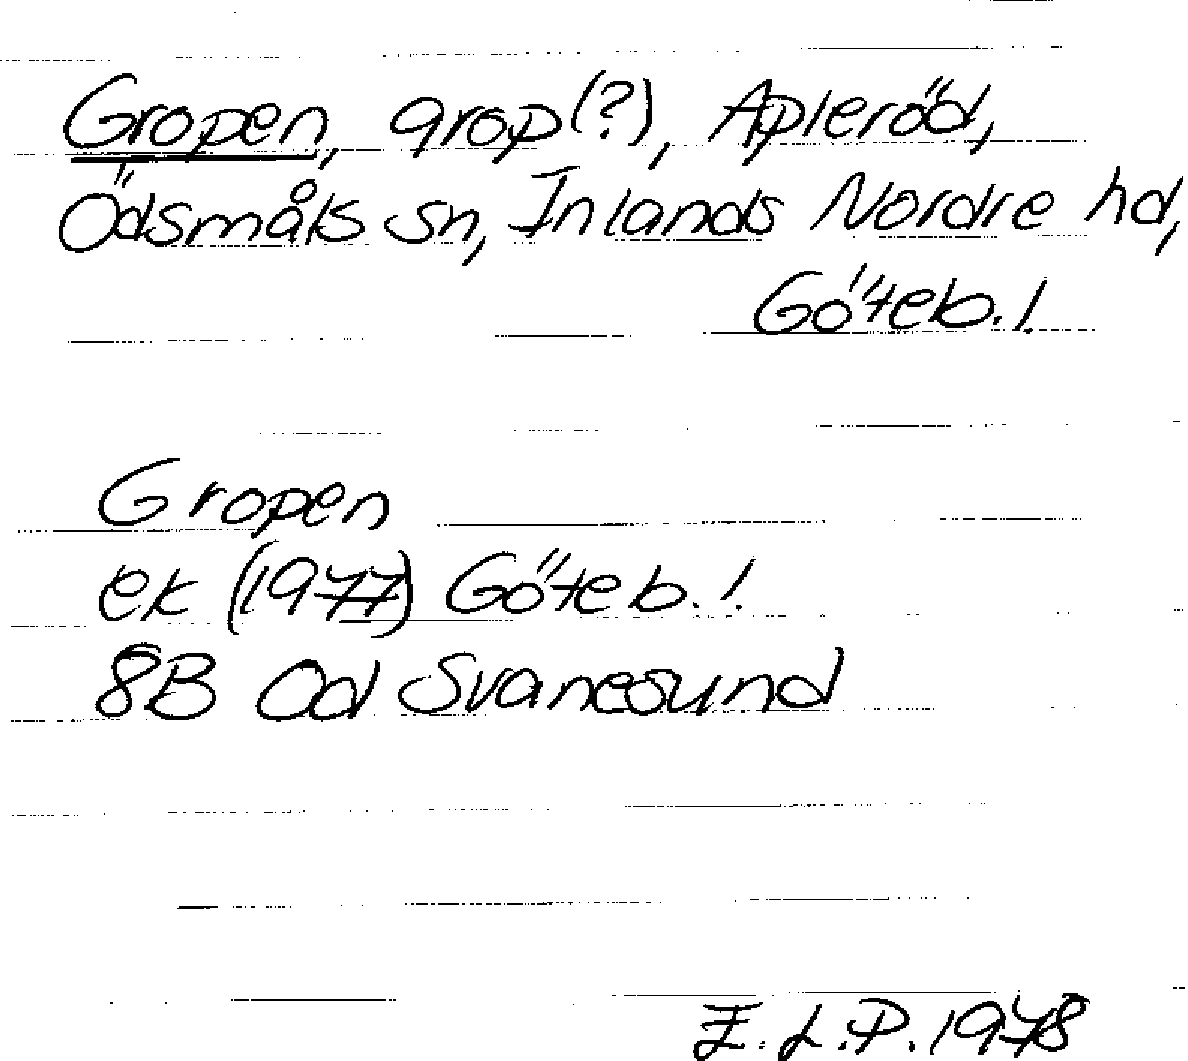 Gropen, grop (?), Apleröd,
Ödsmåls sn, Inlands Nordre hd,
Göteb. l.
Gropen
ek (1977) Göteb. l.
8B Od Svanesund
E. L. P. 1978